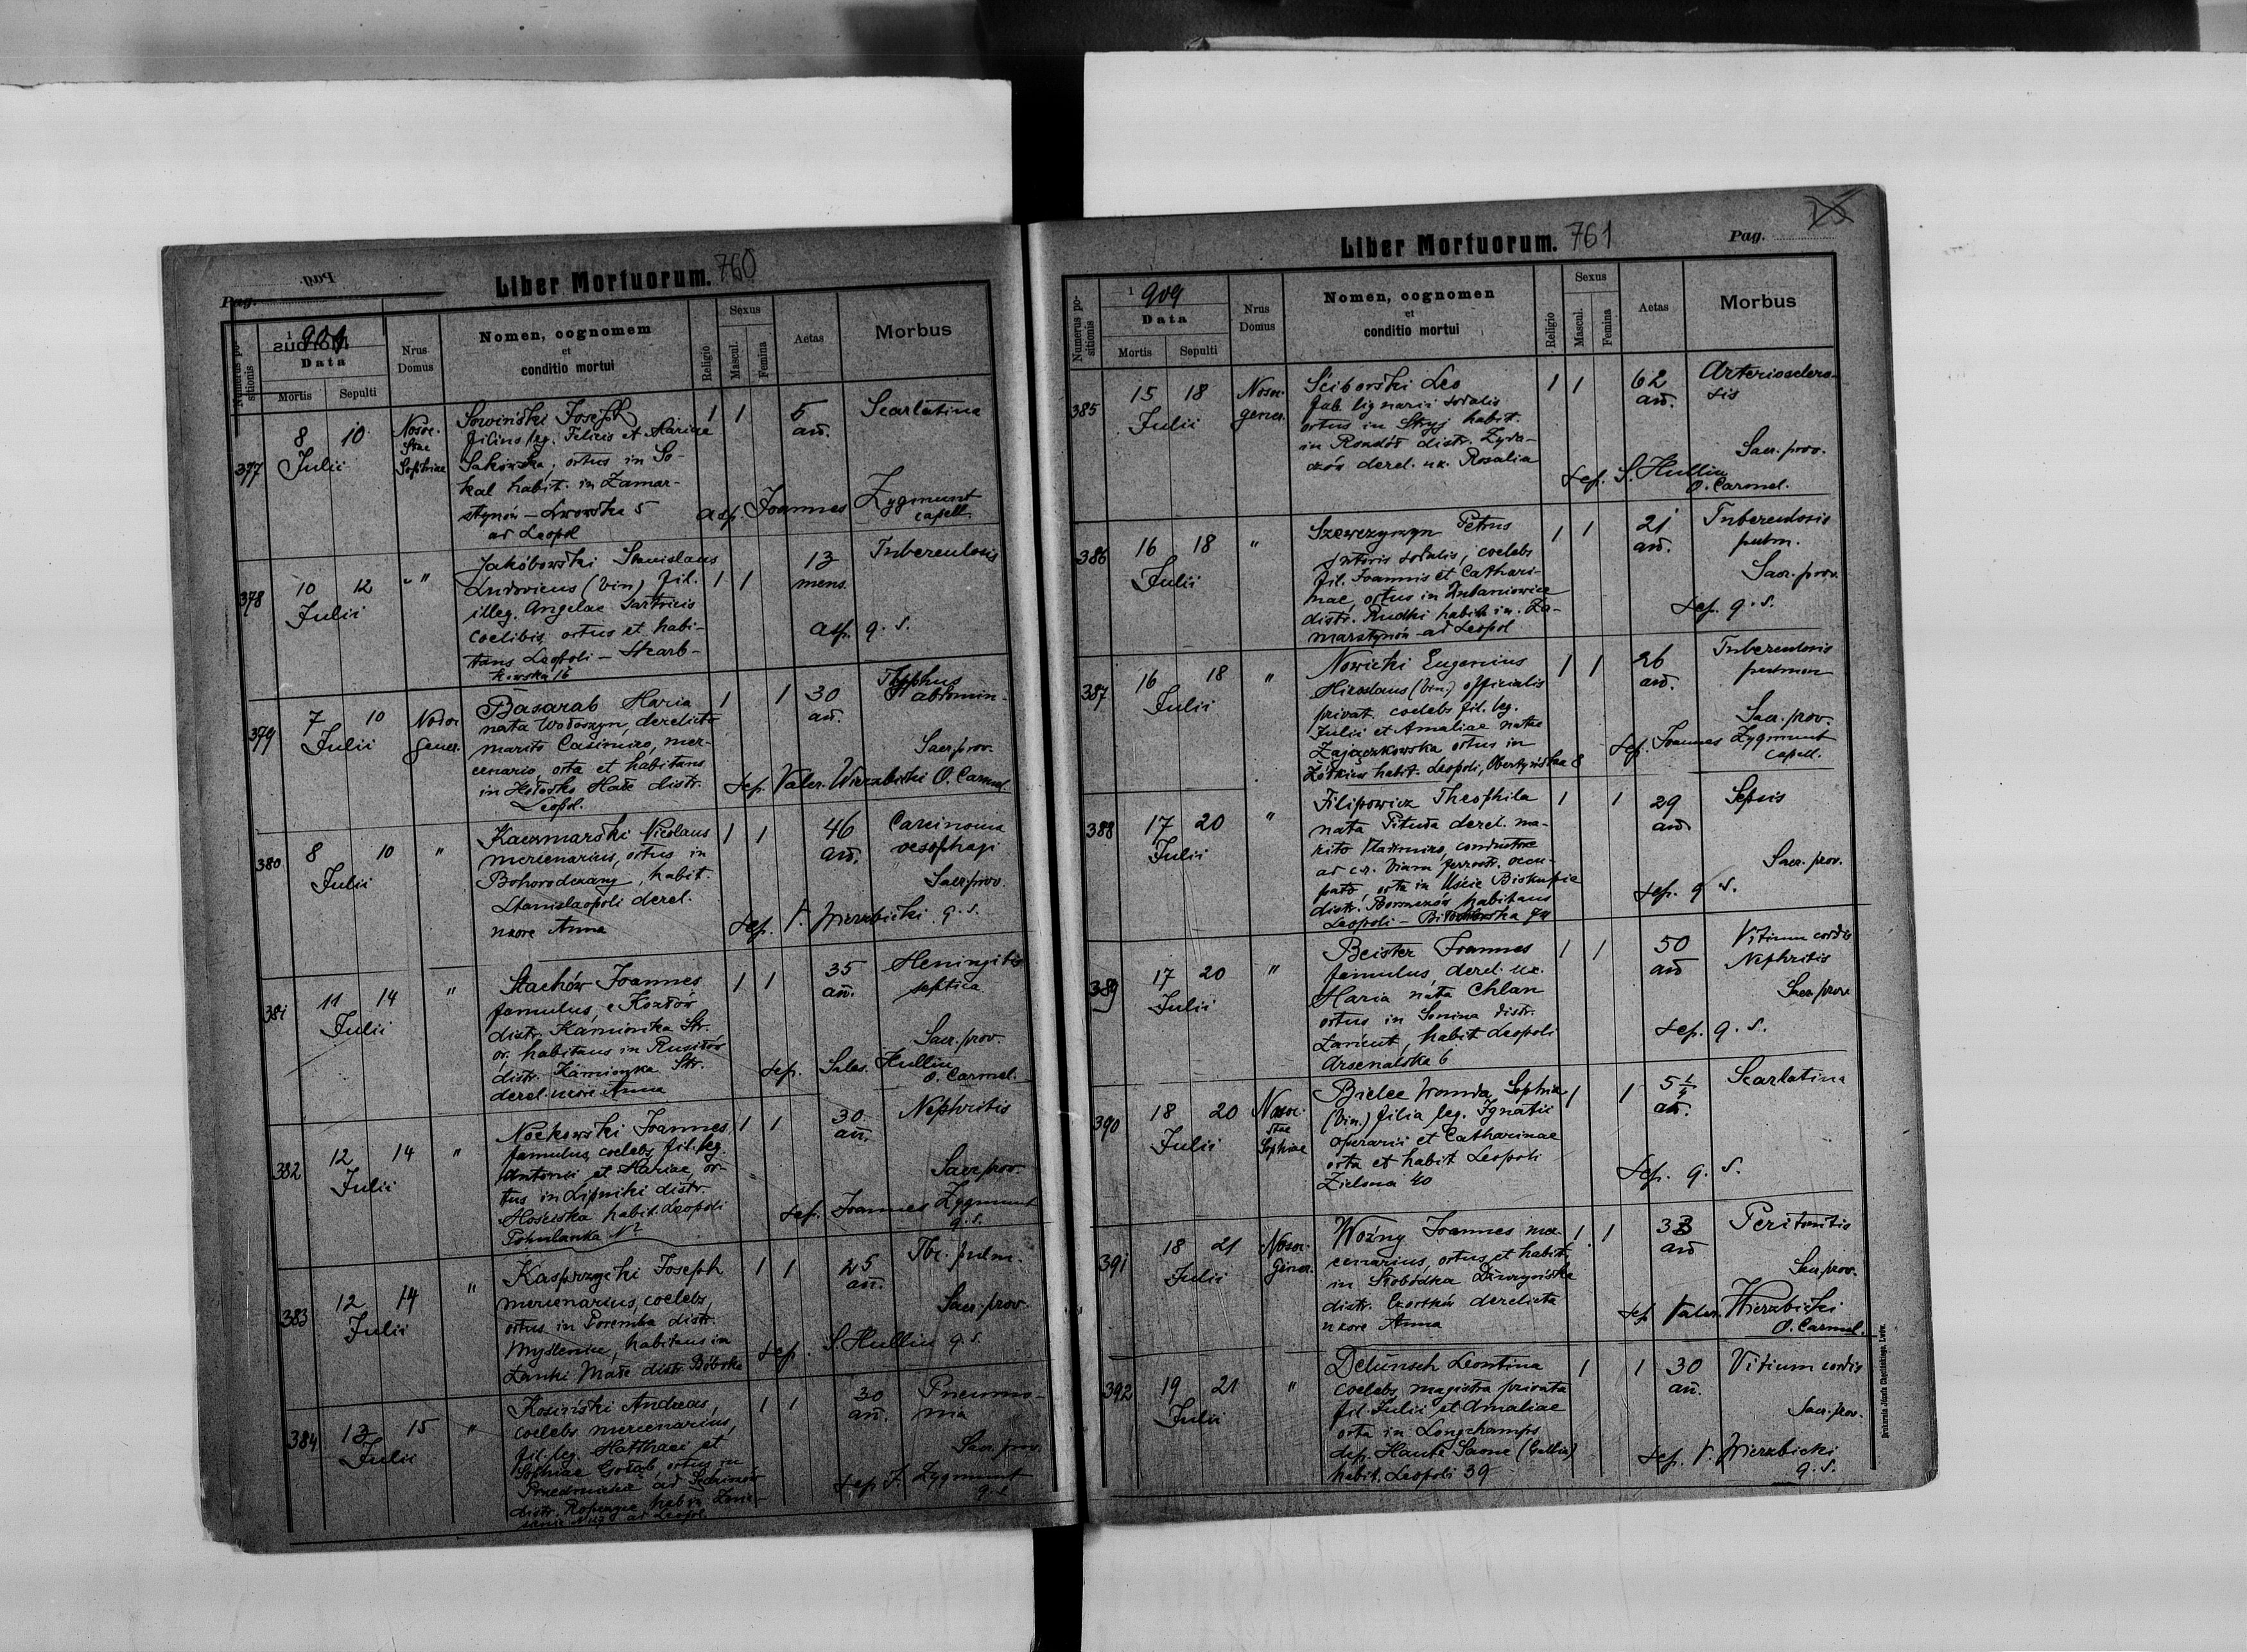 Pag.
Liber Mortuorum. 760
Numerus positionis
1909
Data
Mortis
Sepulti
Nrus Domus
Nomen, cognomem
et
conditio mortui
Religio
Sexus
Mascul.
Femina
Aetas
Morbus
377
8 10
Julii
Nosoc.
Stae
Sophiae
Sowiński Joseph
filius leg. Felicis et Mariae
Sakowska, ortus in So-
kal habit. in Zamar-
stynów – Lwowska 5
ad Leopol
1 1
5
an.
Scarlatina
asp. Joannes Zygmunt
capell.
378
10 12
Julii
"
Jakóbowski Stanislaus
Ludovicus (bin) fil.
illeg. Angelae sartricis
coelibis ortus et habi-
tans Leopoli – Skarb-
kowska 16
1 1
13
mens.
Tuberculosis
asp. q. s.
379
7 10
Julii
Nosoc
gener.
Basarab Maria
nata Wołoszyn, derelicto
marito Casimiro, mer-
cenario orta et habitans
in Hołosko Małe distr.
Leopol.
1 1
30
an.
Typhus
abdomin.
Sacr. prov.
sep. Valer. Wierzbicki O. Carmel
380
8 10
Julii
"
Kaczmarski Nicolaus
mercenarius, ortus in
Bohorodczany, habit.
Stanislaopoli derel.
uxore Anna
1 1
46
an.
Carcinoma
oesophagi
Sacr. prov.
sep. V. Wierzbicki q. s.
381
11 14
Julii
"
Stachów Joannes
famulus, e Kozłów
distr. Kamionka Str.
or. habitans in Rusiłów
distr. Kamionka Str.
derel. uxore Anna
1 1
35
an.
Meningitis
septica
Sacr. prov.
sep. Sales. Hullin
O. Carmel.
382
12 14
Julii
"
Nockowski Joannes
famulus, coelebs, fil. leg.
Antonii et Mariae, or-
tus in Lipniki distr.
Mościska habit. Leopoli
Pohulanka
1 1
30
an.
Nephritis
Sacr. prov.
sep. Joannes Zygmunt
q. s.
383
12 14
Julii
"
Kasprzycki Joseph
mercenarius, coelebs,
ortus in Poremba distr.
Myślenice, habitans in
Łanki Małe distr. Bóbrka
1 1
25
an.
Tbc. pulm.
Sacr. prov.
sep. S. Hullin q. s.
384
13 15
Julii
"
Kosiński Andreas,
coelebs mercenarius,
fil. leg. Matthaei et
Sophiae Gołąb, ortus in
distr. Ropczyce hab in Znie-
ad Leopol.
1 1
30
an.
Pneumo-
nia
Sacr. prov.
sep J. Zygmunt
q. s.
Liber Mortuorum. 761
Pag.
Numerus positionis
1909
Data
Mortis
Sepulti
Nrus
Domus
Nomen, cognomen
et
conditio mortui
Religio
Sexus
Mascul.
Femina
Aetas
Morbus
385
15 18
Julii
Nosoc.
gener.
Ściborski Leo
fab. lignarii sodalis
ortus in Stryj habit.
in Rozdół distr. Żyda-
czów derel. ux. Rosalia
1 1
62
an.
Arterioscleo-
sis
Sacr. prov.
sep. S. Hullin
O. Carmel.
386
16 18
Julii
"
Szewczyszyn Petrus
sutoris sodalis, coelebs
fil. Joannis et Cathari-
nae, ortus in Hubaniowice
distr. Rudki habit. in Za-
marstynów ad Leopol
1 1
21
an.
Tuberculosis
pulm.
Sacr. prov.
sep. q. s.
387
16 18
Julii
"
Nowicki Eugenius
Miroslaus (bin.) officialis
privat. coelebs fil. leg.
Julii et Amaliae natae
Zajączkowska ortus in
Żółkiew habit. Leopoli, Obertyńska 8
1 1
26
an.
Tuberculosis
pulmon
Sacr. prov.
sep. Joannes Zygmunt
Capell.
388
17 20
Julii
"
Filipowicz Theophila
nata Pituła derel. ma-
rito Vladimiro, conductore
ad c.r. viam ferreat. occu-
pato, orta in Uście Biskupie
distr. Borszczów habitans
Leopoli –
1 1
29
an.
Sepsis
Sacr. prov.
sep. q. s.
389
17 20
Julii
"
Beister Joannes
famulus, derel. ux.
Maria nata Chlan
ortus in Sonina distr.
Łańcut, habit Leopoli
Arsenalska 6
1 1
50
an
Vitium cordis
Nephritis
Sacr. prov.
sep. q. s.
390
18 20
Julii
Nosoc.
Stae
Sophiae
Bielec Wanda Sophia
(bin.) filia leg. Ignatii
operarii et Catharinae
orta et habit Leopoli
Zielona 40
1 1
5 1/4
an.
Scarlatina
sep. q. s.
391
18 21
Julii
Nosoc.
Gener.
Woźny Joannes mer-
cenarius, ortus et habit.
in Słobódka Dżuryńska
distr. Czortków derelicta
uxore Anna
1 1
33
an
Peritonitis
Sacr. prov.
sep Valer. Wierzbicki
O. Carmel.
392
19 21
Julii
"
Delünsch Leontina
coelebs, magistra privata
fil. Julii et Amaliae
orta in Longchamps
dep. Haute Saone (Gallia)
habit. Leopoli 39
1 1
30
an.
Vitium cordis
Sacr. prov.
sep. V. Wierzbicki
q. s.
Drukarnia Józefa Chęcińskiego, Lwów.